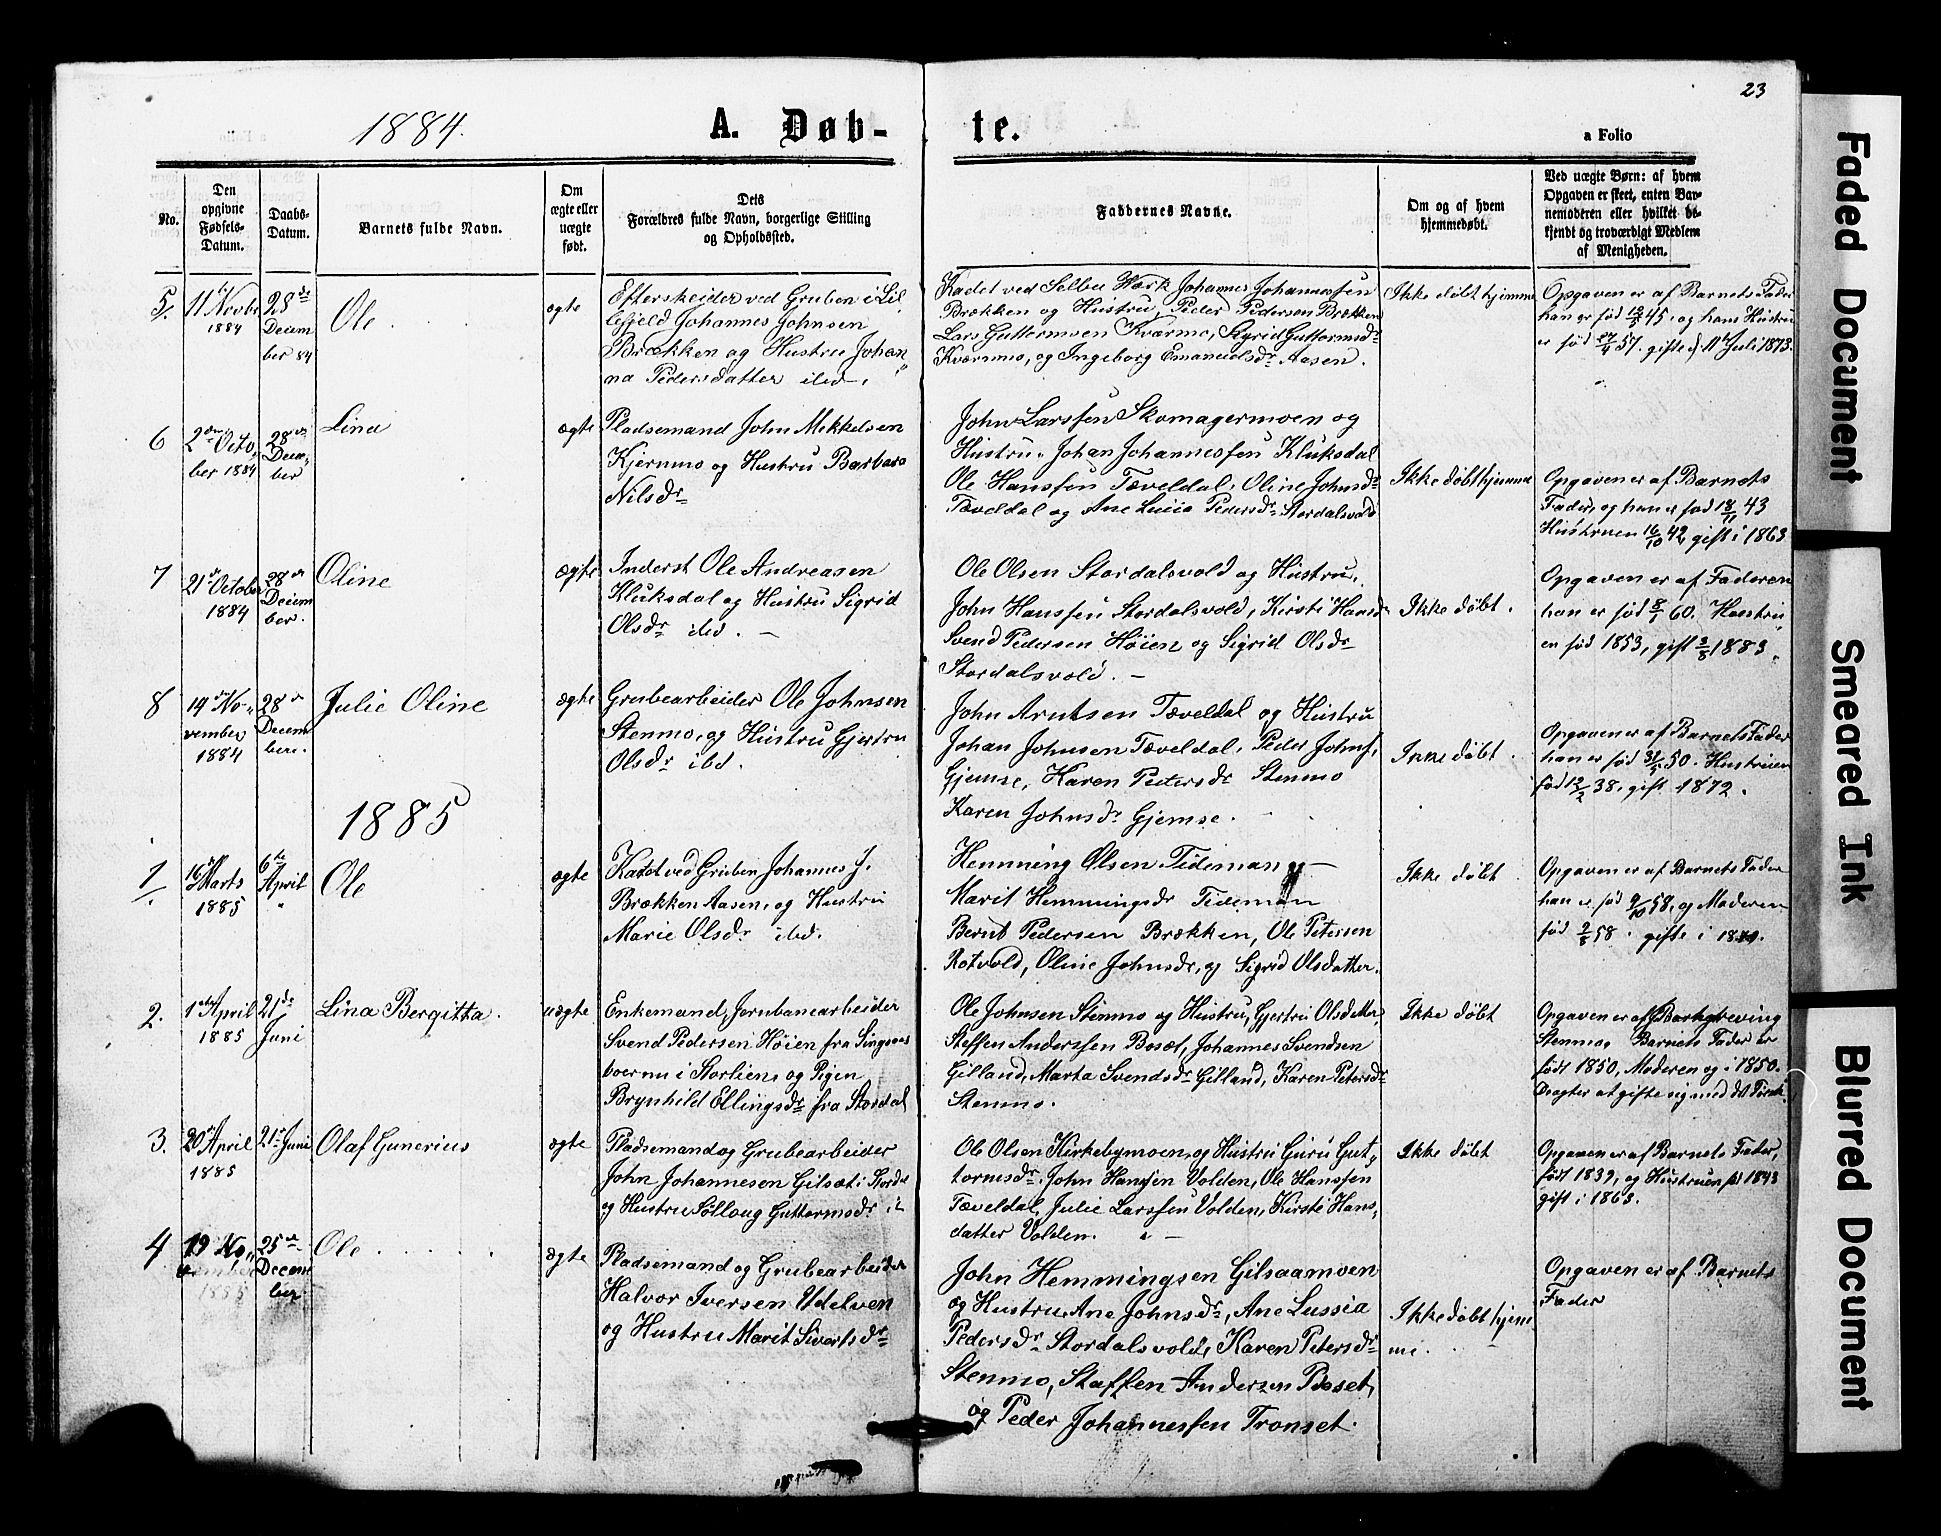 23
1884.
A. Døb-
te.
a Folio
No.
Den
opgivne
Fødsels-
Datum.
Daabs-
Datum.
Barnets fulde Navn.
Om
ægte eller
uægte
født.
Dets
Forældres fulde Navn, borgerlige Stilling
og Opholdssted.
Faddernes Navne.
Om og af hvem
hjemmedøbt.
Ved uægte Børn: af hvem
Opgaven er skeet, enten Bar-
nemoderen eller hvilket be-
kjendt og troværdigt Medlem
af Menigheden.
5.
11te Novbr
1884
28de
Decem
ber 84
Ole
ægte
Efterskeider ved Gruben i Lil
lefjeld Johannes Johnsen
Brækken og Hustru Johan
na Pedersdatter ibd.
Kadet ved Selbu Værk Johannes Johannessen
Brækken og Hustru, Peder Pedersen Brækken
Lars Guttormsen Kværmo, Sigrid Guttormsdr
Kværnmo, og Ingeborg Emanuelsdr Aasen.
Ikke døbt hjemme
Opgaven er af Barnets Fader
han er fød 12/5 45, og hans Hustru
er fød 27/4 57. gifte d. 11te Juli 1873.
6
2den Octo
ber 1884
28de
Decem
ber
Lina
ægte
Pladsemand John Mikkelsen
Kjernmo og Hustru Barbara
Nilsdr
John Larssen Skomagermoen og
Hustru. Johan Johannessen Kluksdal
Ole Hanssen Tæveldal, Oline Johnsdr
Tæveldal og Ane Lucia Pedersdr Stordalsvold
Ikke døbt hjemme
Opgaven er af Barnets
Fader, og han er fød 18/11 43
Hustruen 16/10 42, gift i 1863
7
21de October
1884
28de
Decem
ber.
Oline
ægte
Inderst Ole Andreasen
Kluksdal og Hustru Sigrid
Olsdr ibd.
Ole Olsen Stordalsvold og Hustru,
John Hanssen Stordalsvold, Kirsti Hansdr
Svend Pedersen Høien og Sigrid Olsdr
Stordalsvold.
Ikke døbt.
Opgaven er af Faderen
han er fød 8/1 60. Hustru
en fød 1853, gift 3/8 1883.
8
14de No-
vember
1884
28de
Decem
ber.
Julie Oline
ægte
Grubearbeider Ole Johnsen
Stenmo, og Hustru Gjertru
Olsdr ibd.
John Arntsen Tæveldal og Hustru
Johan Johnsen Tæveldal, Peder Johns.
Gjemse, Karen Petersdr Stenmo
Karen Johnsdr Gjemse.
Ikke døbt.
Opgaven er af Barnets Fader
han er fød 50. Hustruen
fød 12/2 38, gift 1872.
1885
1.
16de Marts
1885
6te
April
Ole
ægte
Kadet ved Gruben Johannes J.
Brækken Aasen, og Hustru
Marie Olsdr ibd.
Hemming Olsen Tideman og
Marit Hemmingsdr Tideman
Bernt Pedersen Brækken, Ole Petersen
Rotvold, Oline Johnsdr, og Sigrid Olsdatter.
Ikke døbt
Opgaven er af Barnets Fader
han er fød 9/10 58, og Moderen
fød 2/8 58. gifte i
2.
1ste April
1885
21de
Juni
Lina Bergitta.
uægte
Enkemand, Jernbanearbeider
Svend Pedersen Høien fra Singsaas
boer nu i Storliens og Pigen
Brynhild Ellingsdr fra Stordal
Ole Johnsen Stenmo og Hustru, Gjertru Olsdatter,
Steffen Anderssen Boset, Johannes Svendsen
Gilland, Marta Svendsdr Gilland, Karen Petersdr
Stenmo.
Ikke døbt
Opgaven er af
Stenmo, Barnets Fader er
født 1850, Moderen og i 1850.
Dragter at gifte sig med det første.
3.
20de April
1885
21de Juni
Olaf Gunerius
ægte
Pladsemand og Grubearbeider
John Johannesen Gilsæt i Stordal
og Hustru Sølloug Guttormsdr
Ole Olsen Kirkebymoen, og Hustru Guru Gut,
tormsdr, John Hanssen Volden, Ole Hanssen
Tæveldal, Julie Larssen Volden, Kirsti Hans,
datter Volden.
Ikke døbt
Opgaven er af Barnets Fader,
født 1839, og Hustruen fød 1843
gift i 1863.
4
19 No
vember
1885
25de
Decem
ber.
Ole
ægte
Pladsemand og Grubearbeider
Halvor Iversen Udelven
og Hustru Marit Sivertsdr
John Hemmingsen Gilsaamoen
og Hustru, Ane Johnsdr, Ane Lussia
Pedersdr Stordalsvold, Karen Petersdr
Stenmo, Staffen Andersen Boset,
og Peder Johannessen Tronset.
Ikke døbt hjem
me.
Opgaven er af Barnets
Fader
Faded Document
Smeared Ink
Blurred Document